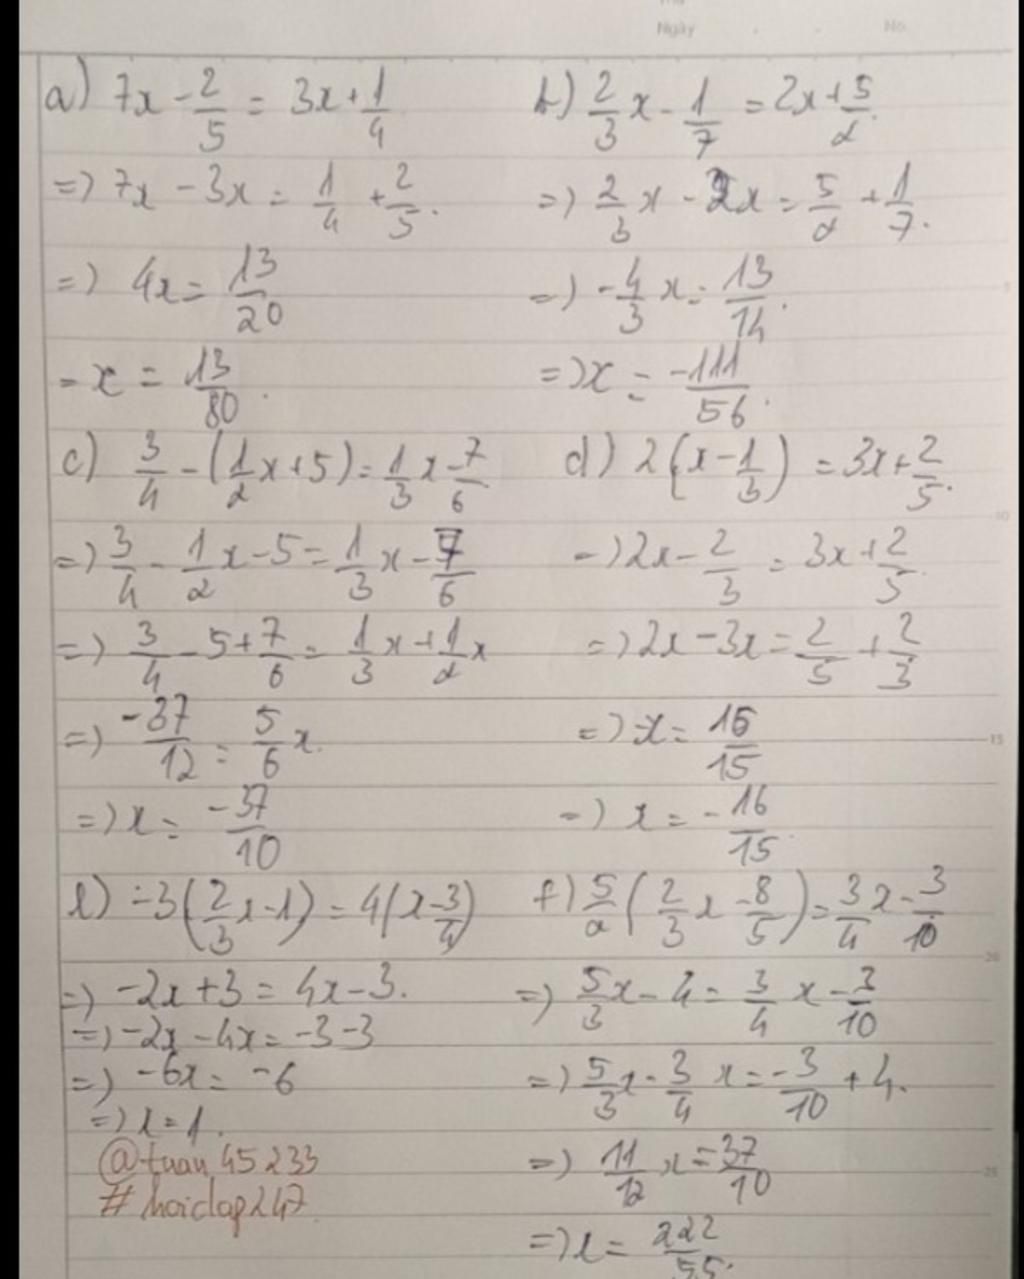 Ngày No.
a) 7x - 2/5 = 3x + 1/4
=> 7x - 3x = 1/4 + 2/5.
=> 4x = 13/20
= x = 13/80.
b) 2/3 x - 1/7 = 2x + 5/2.
=> 2/3 x - 2x = 5/2 + 1/7.
=> -4/3 x = 13/14.
=> x = -111/56.
c) 3/4 - (1/2 x + 5) = 1/3 x - 7/6
=> 3/4 - 1/2 x - 5 = 1/3 x - 7/6
=> 3/4 - 5 + 7/6 = 1/3 x + 1/2 x
=> -37/12 = 5/6 x.
=> x = -37/10
d) 2(x - 1/3) = 3x + 2/5.
=> 2x - 2/3 = 3x + 2/5.
=> 2x - 3x = 2/5 + 2/3
=> -x = 16/15
=> x = -16/15.
e) -3(2/3 x - 1) = 4(x - 3/4)
=> -2x + 3 = 4x - 3.
=> -2x - 4x = -3 - 3
=> -6x = -6
=> x = 1.
@tuan45233
#hoidap247
f) 5/2 (2/3 x - 8/5) = 3/4 x - 3/10
=> 5/3 x - 4 = 3/4 x - 3/10
=> 5/3 x - 3/4 x = -3/10 + 4.
=> 11/12 x = 37/10
=> x = 222/55.